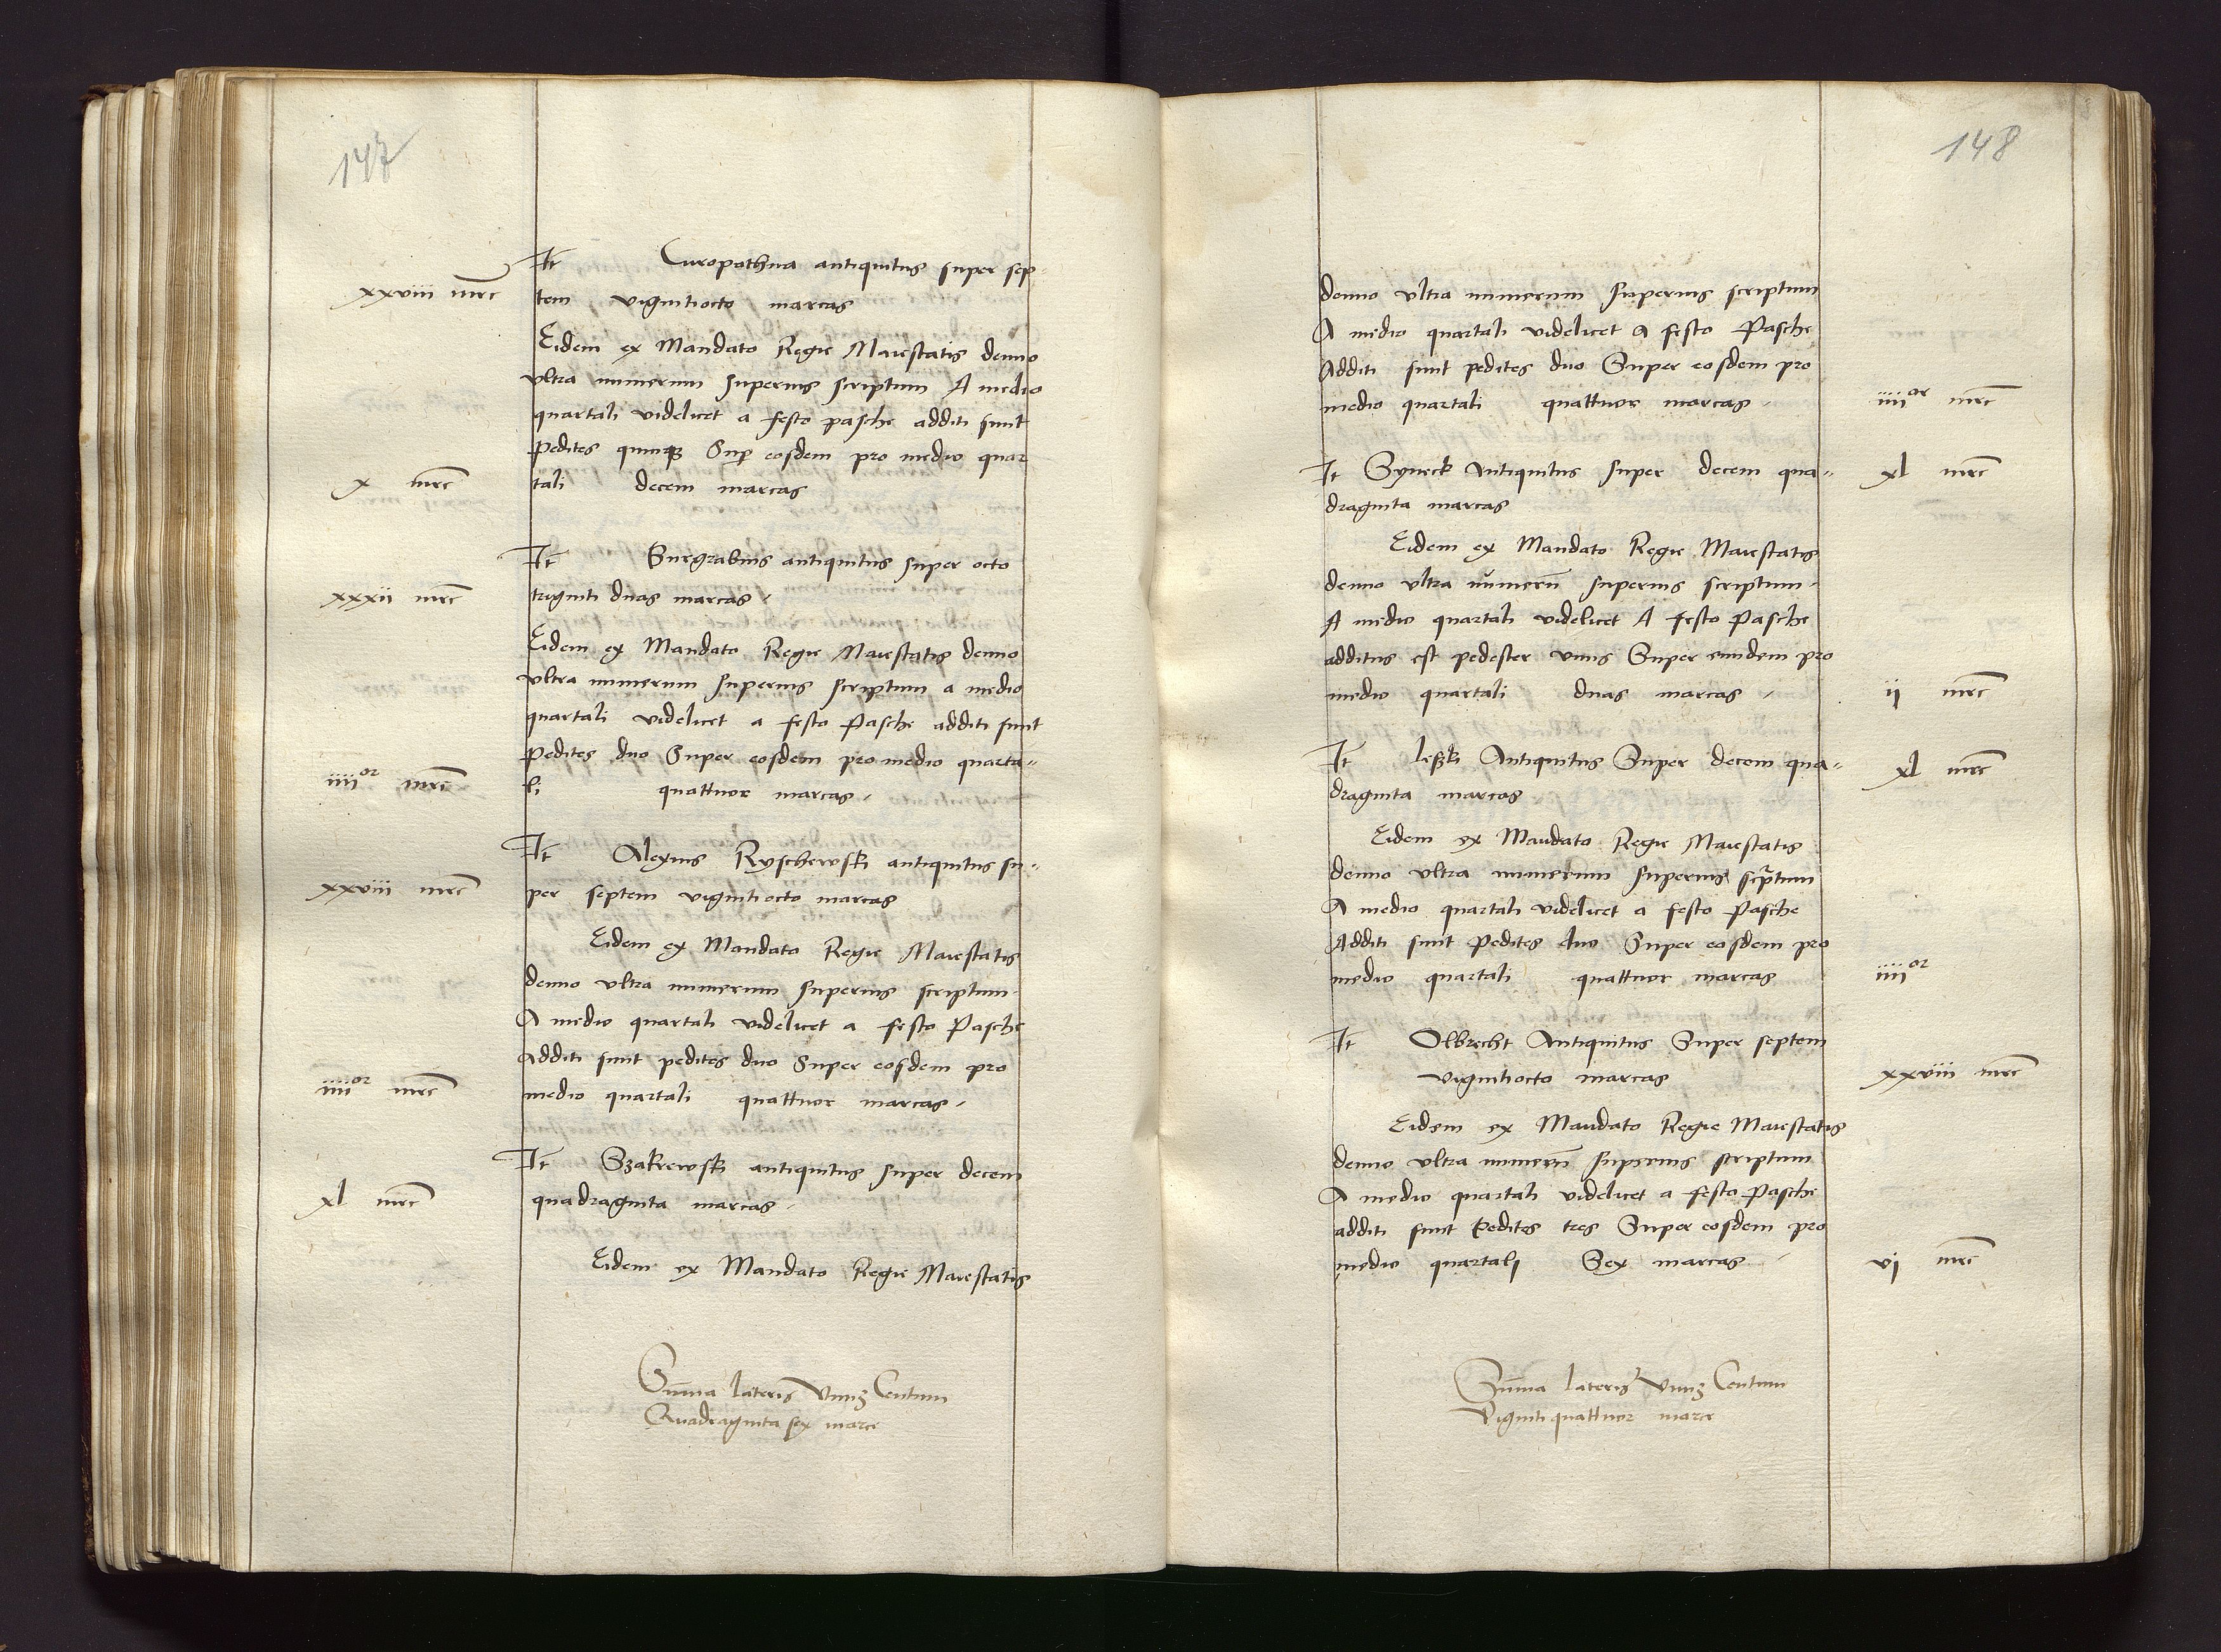 147
It Curopathna antiquitus super sep-
xxviii mrc tem vigintiocto marcas
Eidem ex Mandato Regie Maiestatis denuo
vltra numerum superius scriptum A medio
quartali videlicet a festo pasche additi sunt
Pedites quinqz Sup eosdem pro medio quar
x mrc tali decem marcas
It Surgrabius antiquitus super octo
xxxii mrc triginti duas marcas
Eidem ex Mandato Regie Maiestatis denuo
vltra numerum superius scriptum a medio
quartali videlicet a festo Pasche additi sunt
Pedites duo Super eosdem pro medio quarta-
iiiior mrc li quattuor marcas
It Alexius Ryschewski antiquitus su-
xxviii mrc per septem vigintiocto marcas
Eidem ex Mandato Regie Maiestatis
denuo vltra numerum superius scriptum
A medio quartali videlicet a festo Pasche
Additi sunt pedites duo Super eosdem pro
iiiior mrc medio quartali quattuor marcas
It Szakrewski antiquitus super decem
xl mrc quadraginta marcas
Eidem ex Mandato Regie Maiestatis
Suma lateris Vnuz Centum
Quadraginta sex marce
148
denuo vltra numerum superius scriptum
A medio quartali videlicet a festo Pasche
Additi sunt pedites duo Super eosdem pro
medio quartali quattuor marcas iiiior mrc
It Syneck Antiquitus super decem qua- xl mrc
draginta marcas
Eidem ex Mandato Regie Maiestatis
denuo vltra numeru superius scriptum
A medio quartali videlicet A festo Pasche
additus est pedester vnus Super eundem pro
medio quartali duas marcas ii mrc
It leszki Antiquitus Super decem qua- xl mrc
draginta marcas
Eidem ex Mandato Regie Maiestatis
denuo vltra numerum superius scriptum
A medio quartali videlicet a festo Pasche
Additi sunt Pedites duo Super eosdem pro
medio quartali quattuor marcas iiiior
It Olbrecht Antiquitus Super septem
vigintiocto marcas xxviii mrc
Eidem ex Mandato Regie Maiestatis
denuo vltra numeru superius scriptum
A medio quartali videlicet a festo Pasche
additi sunt Pedites tres Super eosdem pro
medio quartali Sex marcas vi mrc
Suma lateris Vnuz Centum
Viginti quattuor marce